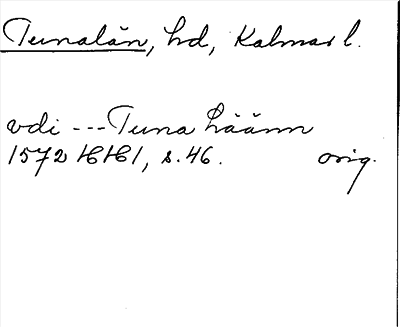 Tunalän, hd, Kalmar l.
vdi --- Tuna häänn
1572 HH1, s. 46. orig.